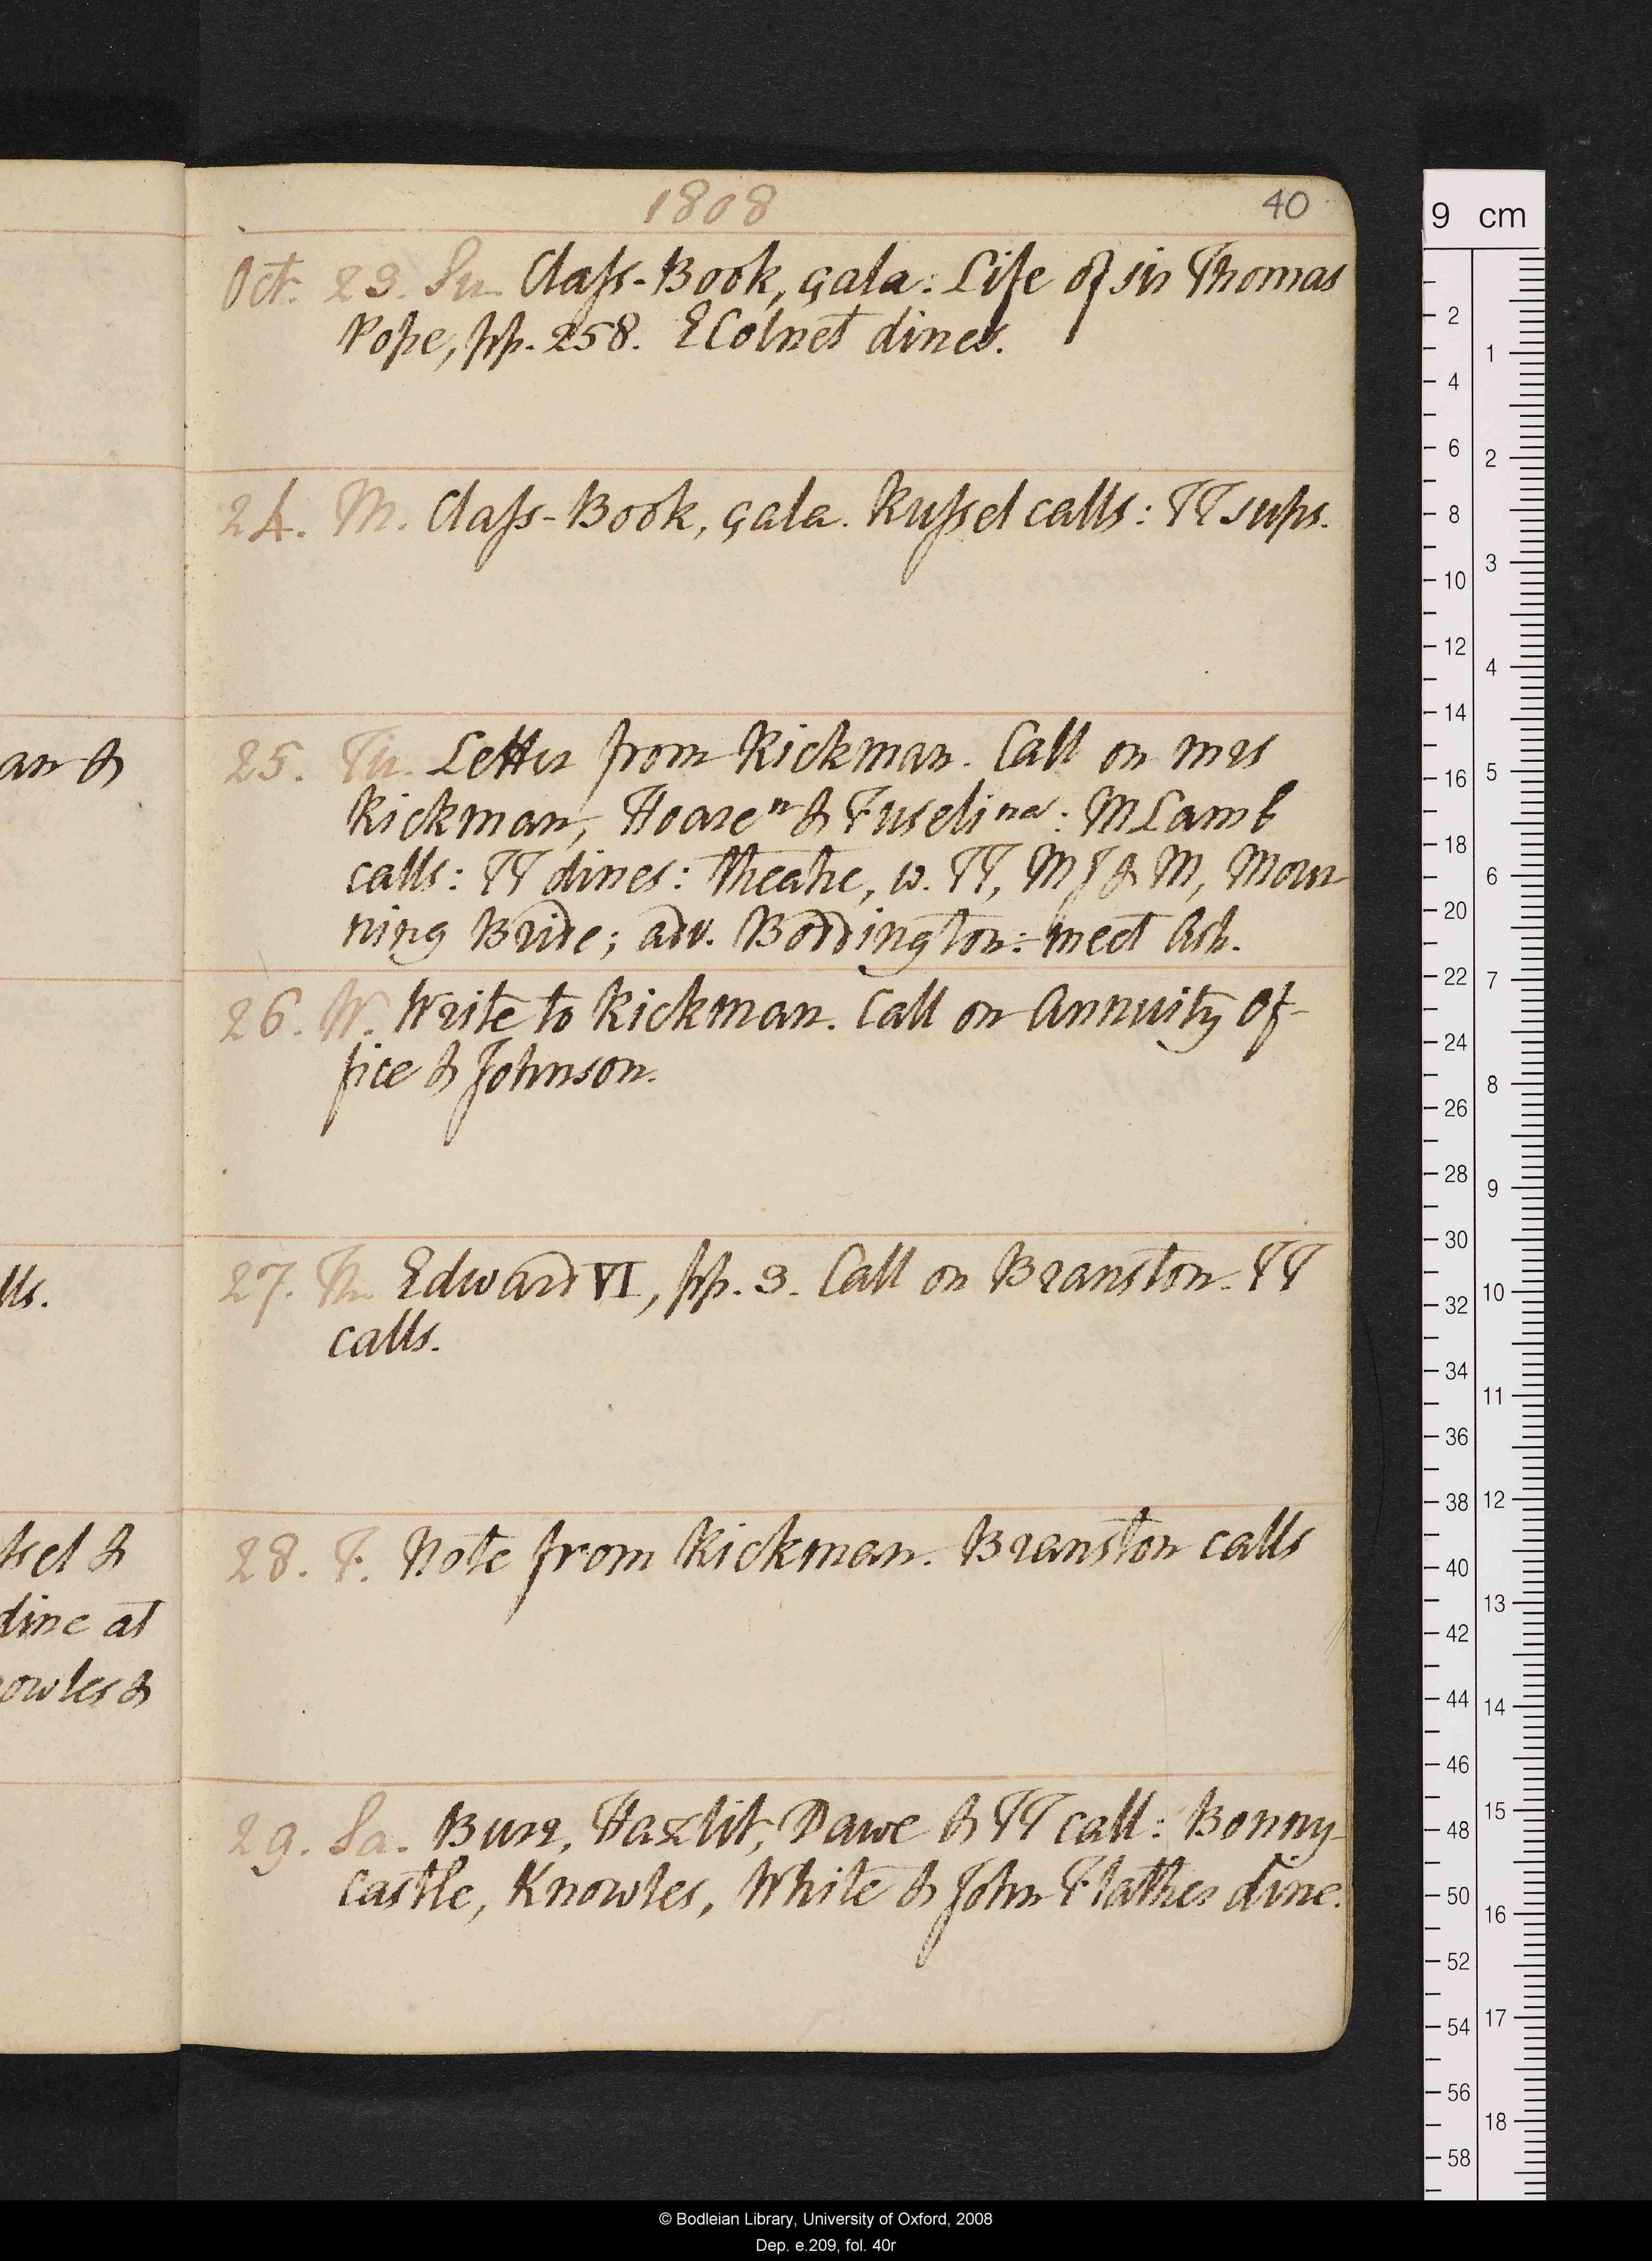 1808
40
Oct. 23. Su. Class-Book, çala: Life of sir Thomas
Pope, pp. 258. E Colnet dines.
24. M. Class-Book, çala. Russel calls: TT sups.
an &
25. Tu. Letter from Rickman. Call on mrs
Rickman, Hoare n & Fuseli na: M Lamb
calls: TT dines: theatre, w. TT, M J & M, Mour-
ning Bride; adv. Boddington: meet Ash.
26. W. Write to Rickman. Call on Annuity Of-
fice & Johnson.
lls.
27. Th. Edward VI, pp. 3. Call on Branston. TT
calls.
sel &
28. F. Note from Rickman. Branston calls
dine at
owles &
29. Sa. Burr, Hazlit, Dawe & TT call: Bonny-
castle, Knowles, White & John Flather dine.
9 cm
2
4
6
8
10
12
14
16
18
20
22
24
26
28
30
32
34
36
38
40
42
44
46
48
50
52
54
56
58
1
2
3
4
5
6
7
8
9
10
11
12
13
14
15
16
17
18
© Bodleian Library, University of Oxford, 2008
Dep. e.209, fol. 40r